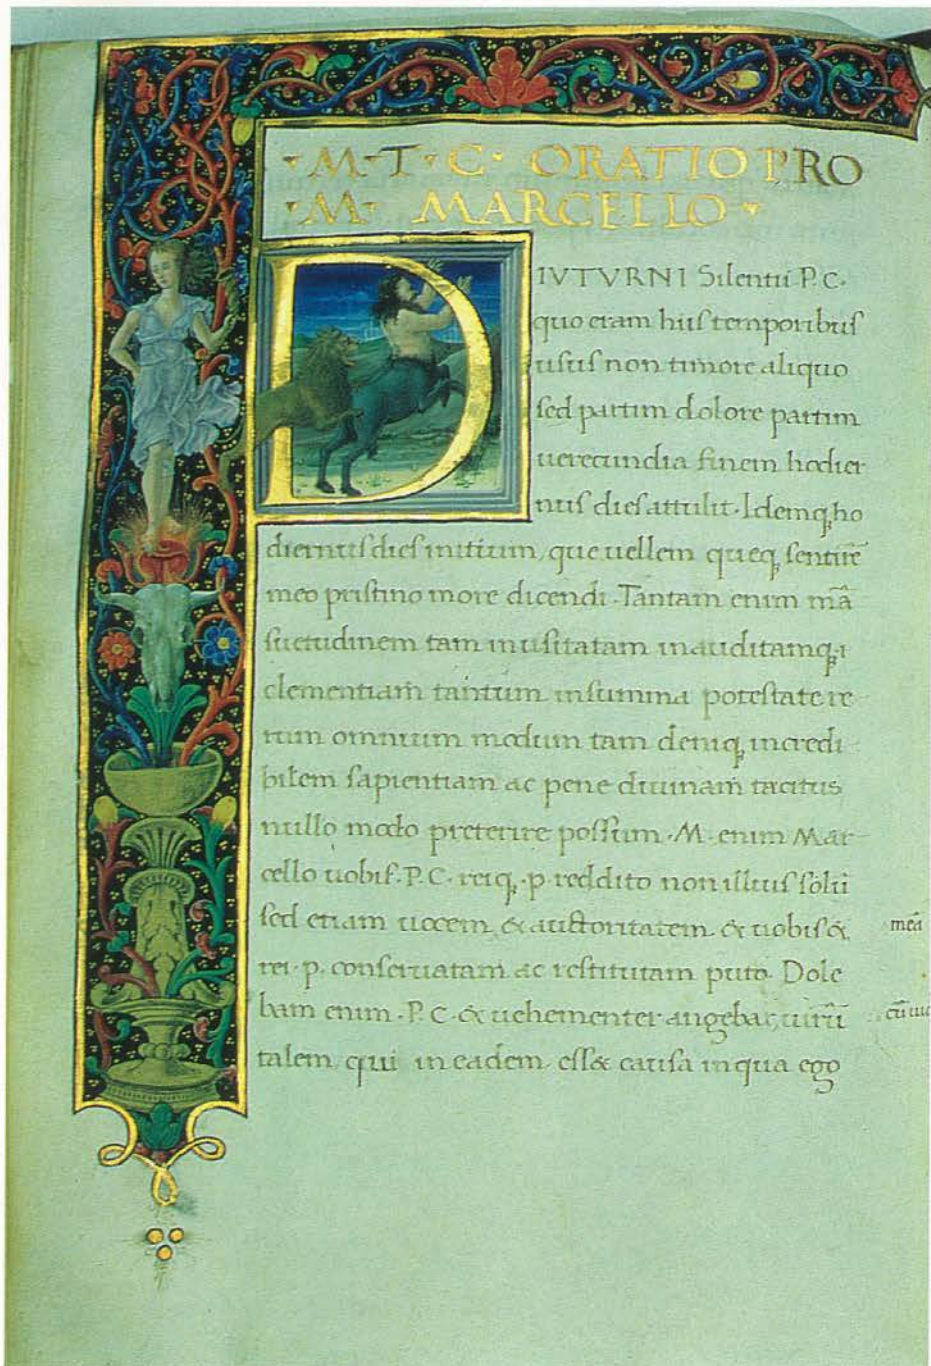 ·M·T·C· ORATIO PRO
·M· MARCELLO·
DIVTVRNI Silentii·P.C·
quo eram hiis temporibus
usus non timore aliquo
sed partim dolore partim
uerecundia finem hodier
nus dies attulit·Idemq; ho
diernus dies initium, que uellem queq; sentirē
meo pristino more dicendi·Tantam enim mā
suetudinem tam inusitatam inauditamq;
clementiam tantum insumma potestate re
rum omnium modum tam deniq; incredi
bilem sapientiam ac pene diuinam tacitus
nullo modo preterire possum·M·enim Mar
cello uobis·P.C·reiq;·p·reddito non illius solū
sed etiam uocem, & auctoritatem & uobis & meā
rei·p·conseruatam ac restitutam puto· Dole
bam enim·P.C·& uehementer angebar, uirū
talem, qui in eadem ess& causa inqua ego